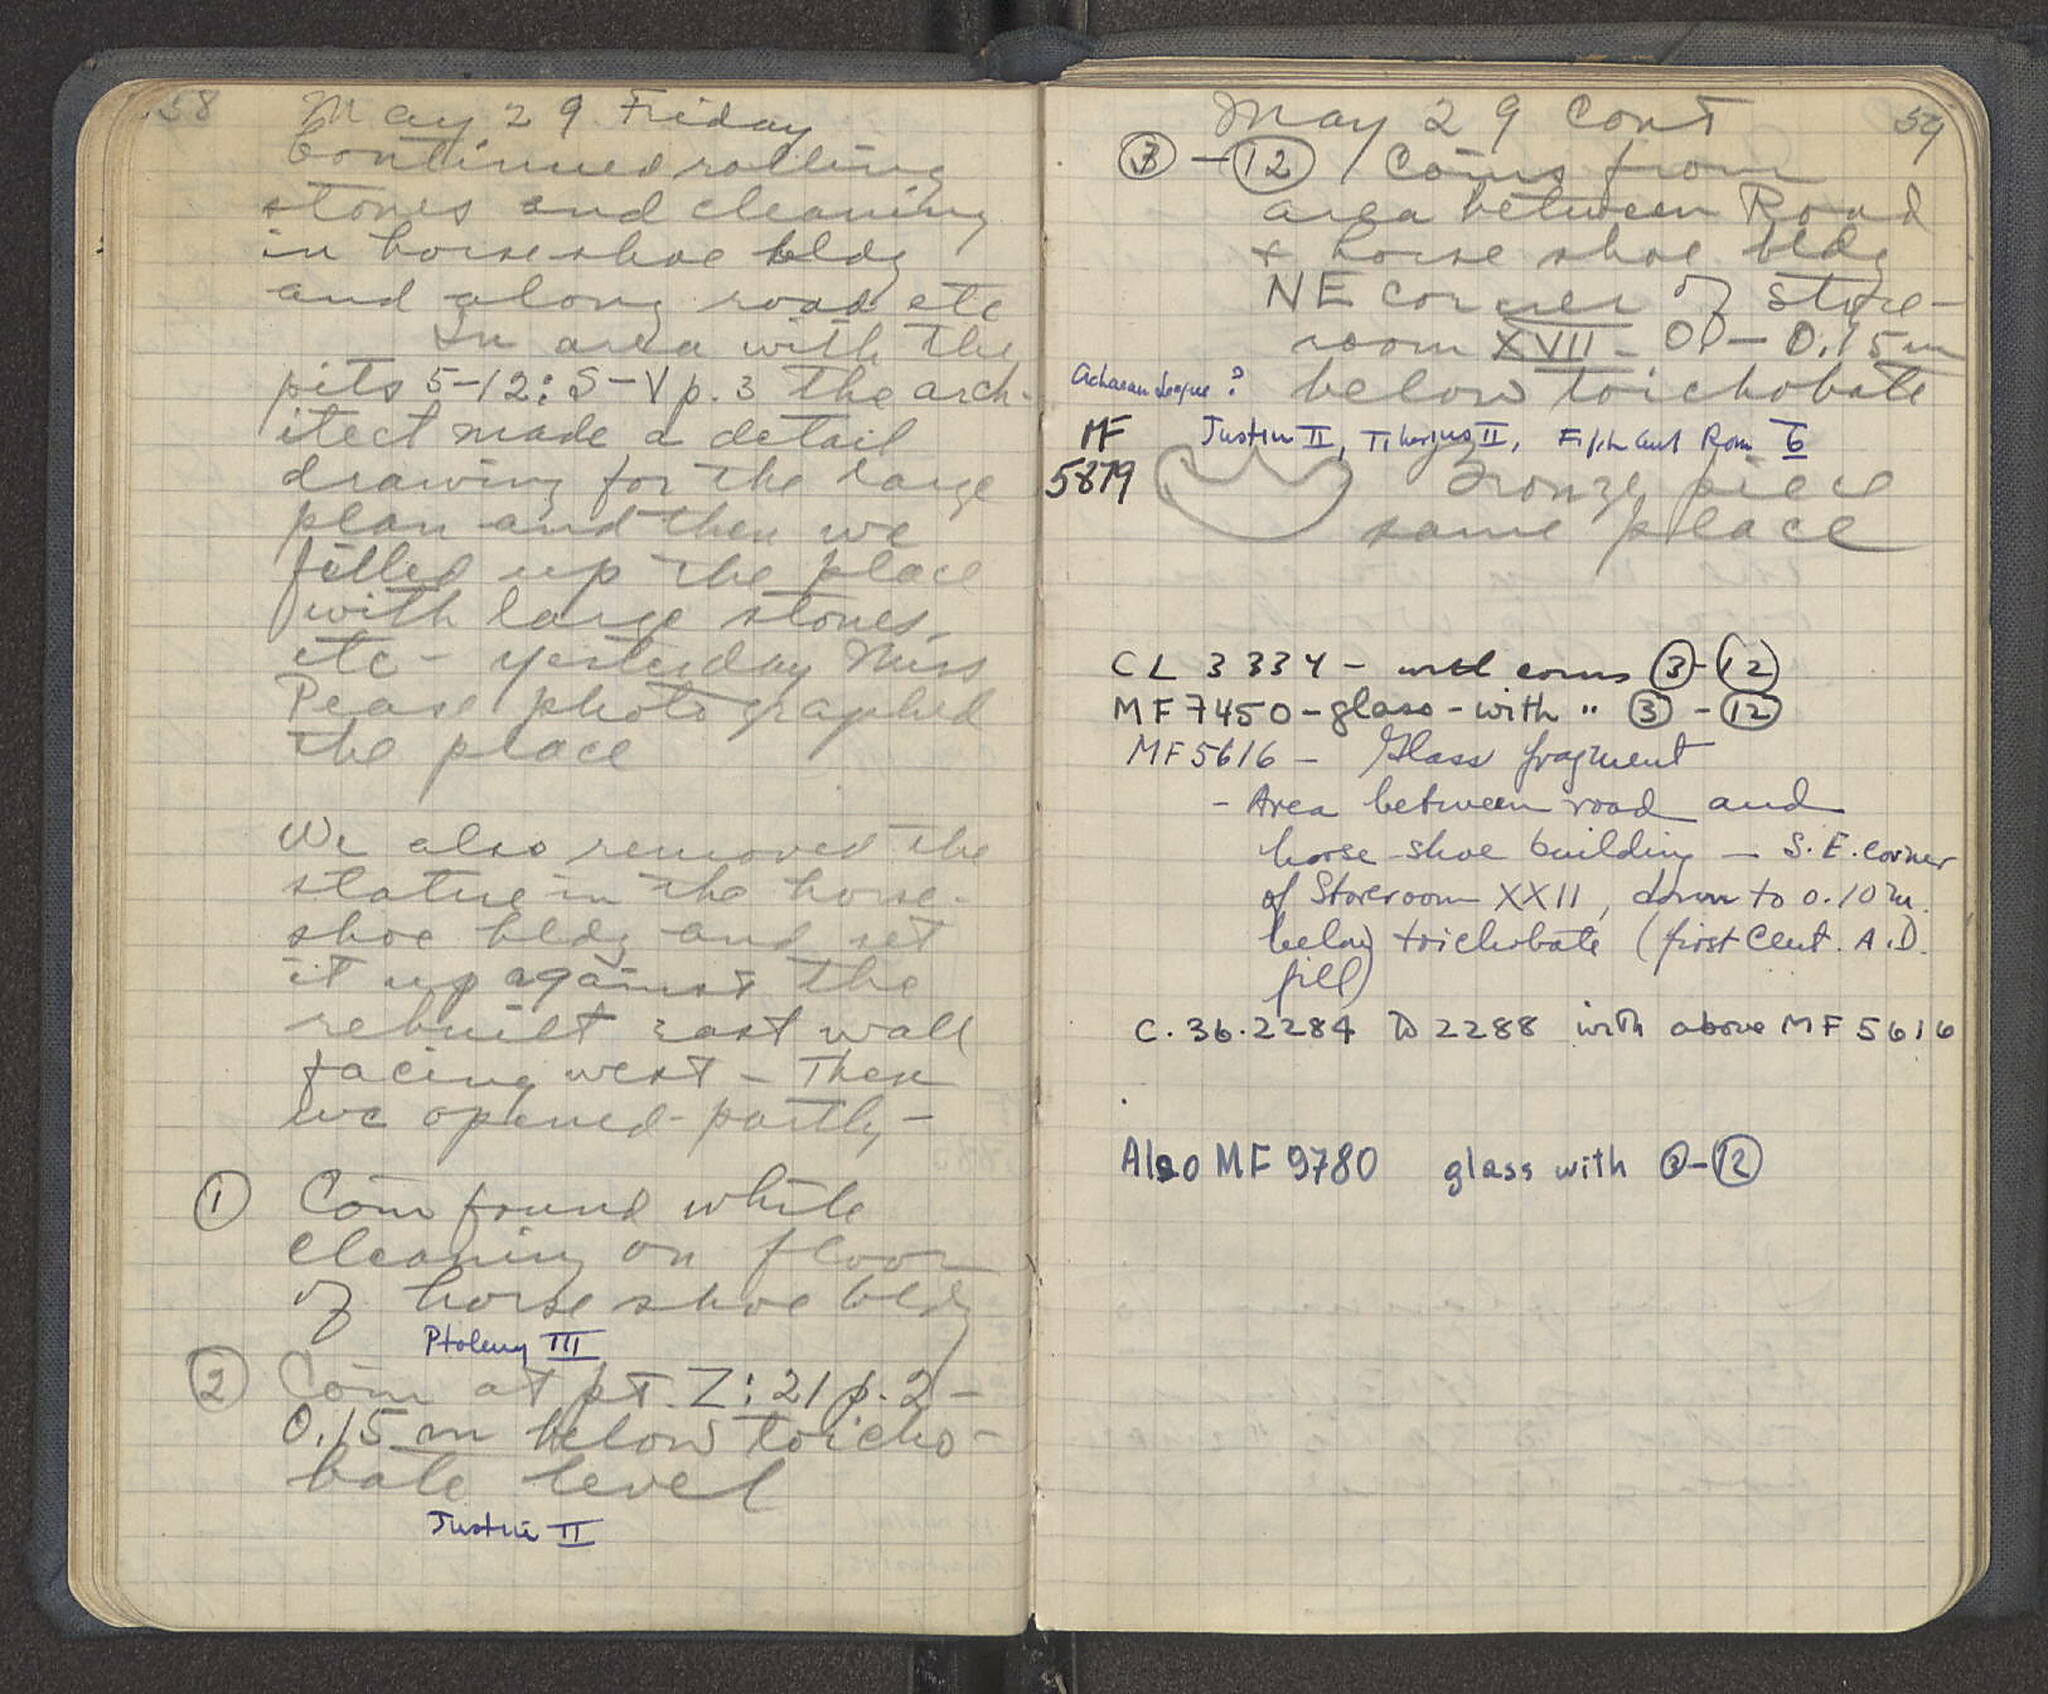 58
May 29 Friday
Continued rolling
stones and cleaning
in horseshoe bldg
and along road etc
In area with the
pits 5-12: S-V p. 3 the arch-
itect made a detail
drawing for the large
plan and then we
filled up the place
with large stones
etc - yesterday Miss
Pease photographed
the place
We also removed the
statue in the horse-
shoe bldg and set
it up against the
rebuilt east wall
facing west - Then
we opened partly -
① Coin found while
cleaning on floor
of horse shoe bldg
Ptolemy III
② Coin at pt. Z: 21 p. 2 -
0.15 m below toicho-
bate level
Justin II
May 29 Cont
59
③ - ⑫ Coins from
area between Road
+ horse shoe bldg
NE corner of store-
room XVII - 0.15 m
Achaean League? below toichobate
MF Justin II, Tiberius II, Fifth Cent Rom 6
5879 Bronze piece
same place
CL 3334 - with coins ③-⑫
MF 7450 - glass - with " ③ - ⑫
MF 5616 - Glass fragment
- Area between road and
horse-shoe building - S.E. corner
of Storeroom XXII, down to 0.10 m.
below toichobate (first cent. A.D.
fill)
C.36.2284 to 2288 with above MF 5616
Also MF 9780 glass with ③-⑫